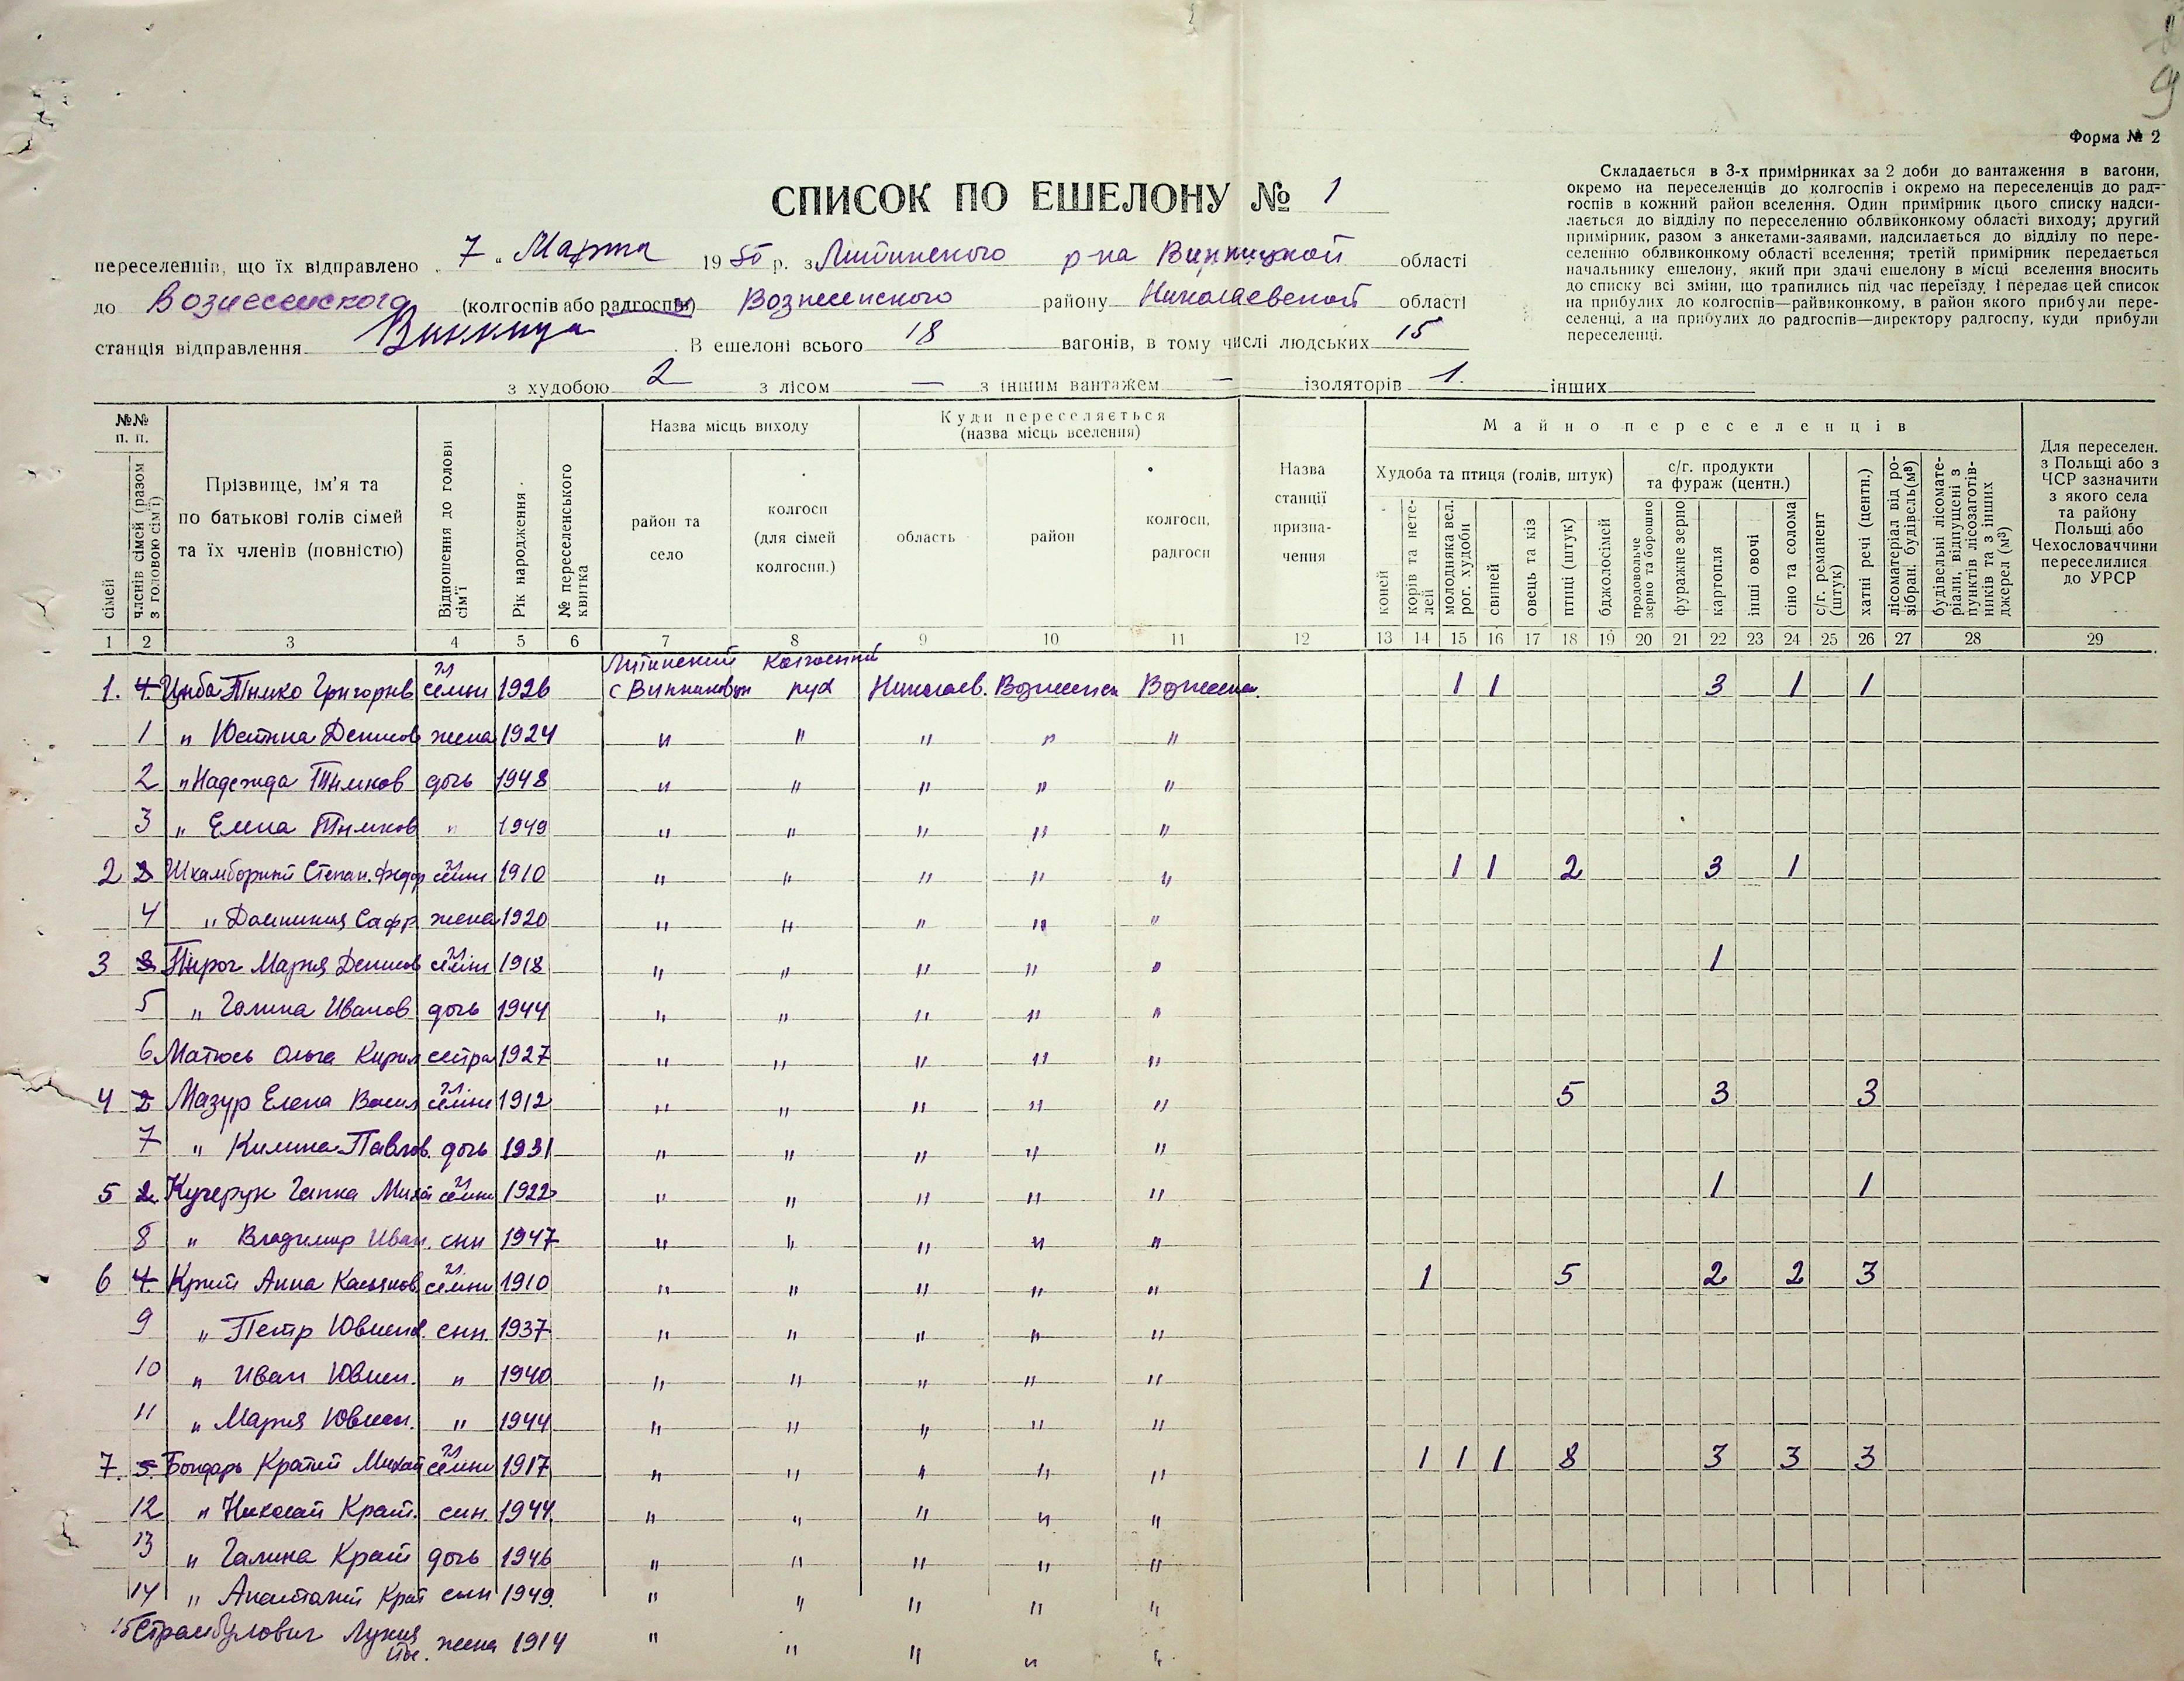 9
Форма № 2
СПИСОК ПО ЕШЕЛОНУ № 1
Складається в 3-х примірниках за 2 доби до вантаження в вагони,
окремо на переселенців до колгоспів і окремо на переселенців до рад-
госпів в кожний район вселення. Один примірник цього списку надси-
лається до відділу по переселенню облвиконкому області виходу; другий
примірник, разом з анкетами-заявами, надсилається до відділу по пере-
селенню облвиконкому області вселення; третій примірник передається
начальнику ешелону, який при здачі ешелону в місці вселення вносить
до списку всі зміни, що трапились під час переїзду і передає цей список
на прибулих до колгоспів—райвиконкому, в район якого прибули пере-
селенці, а на прибулих до радгоспів—директору радгоспу, куди прибули
переселенці.
переселенців, що їх відправлено „ 7 " Марта 1950 р. з Литинского р-на Винницкой області
до Вознесенского (колгоспів або радгоспів) Вознесенского району Николаевской області
станція відправлення Винница В ешелоні всього 18 вагонів, в тому числі людських 15
з худобою 2 з лісом — з іншим вантажем — ізоляторів 1. інших
№№ п. п.
сімей
членів сімей (разом з головою сім'ї)
Прізвище, ім'я та по батькові голів сімей та їх членів (повністю)
Відношення до голови сім'ї
Рік народження
№ переселенського квитка
Назва місць виходу
район та село
колгосп (для сімей колгоспн.)
Куди переселяється (назва місць вселення)
область
район
колгосп, радгосп
Назва станції призна-чення
Майно переселенців
Худоба та птиця (голів, штук)
коней
корів та нете-лей
молодняка вел. рог. худоби
свиней
овець та кіз
птиці (штук)
бджолосімей
с/г. продукти та фураж (центн.)
продовольче зерно та борошно
фуражне зерно
картопля
інші овочі
сіно та солома
с/г. реманент (штук)
хатні речі (центн.)
лісоматеріал від ро-зібран. будівель (м³)
будівельні лісомате-ріали, відпущені з пунктів лісозаготів-ників та з інших джерел (м³)
Для переселен. з Польщі або з ЧСР зазначити з якого села та району Польщі або Чехословаччини переселилися до УРСР
1 2 3 4 5 6 7 8 9 10 11 12 13 14 15 16 17 18 19 20 21 22 23 24 25 26 27 28 29
1. 4. Тимко Григорів гл семьи 1926 Литинский 1 1 3 1 1
1 " Юстина Денисов жена 1924 " " " " "
2 " Надежда Тимков дочь 1948 " " " " "
3 " Елена Тимков " 1949 " " " " "
2 2 Степан. Федор гл семьи 1910 " " " " " 1 1 2 3 1
4 " Сафр. жена 1920 " " " " "
3 3 Пирог Мария Денисов гл семьи 1918 " " " " " 1
5 " Галина Иванов дочь 1944 " " " " "
6 Матюсь Ольга Кирил сестра 1927 " " " " "
4 2 Мазур Елена Васил гл семьи 1912 " " " " " 5 3 3
7 " Килина Павлов. дочь 1931 " " " " "
5 2 Кучерук Ганка Миха гл семьи 1922 " " " " " 1 1
8 " Владимир Иван. сын 1947 " " " " "
6 4. Анна гл семьи 1910 " " " " " 1 5 2 2 3
9 " Петр сын. 1937 " " " " "
10 " Иван " 1940 " " " " "
11 " Мария " 1944 " " " " "
7. 5. Бондарь Михай гл семьи 1917 " " " " " 1 1 1 8 3 3 3
12 " Николай сын. 1944. " " " " "
13 " Галина дочь 1946 " " " " "
14 " сын 1949. " " " " "
15 жена 1914 " " " " "